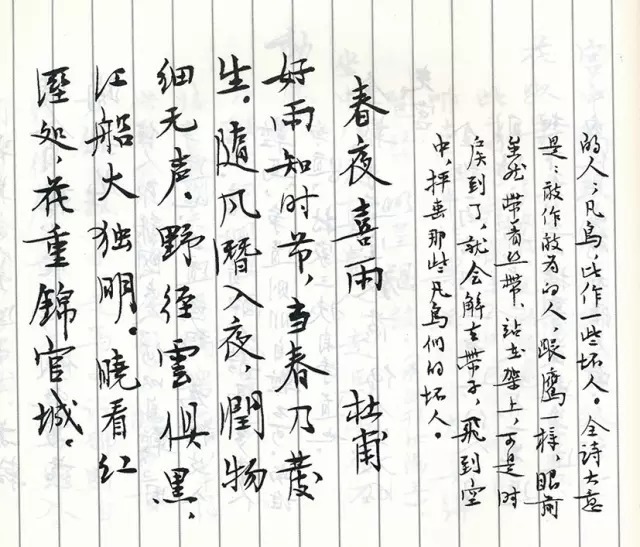 的人；凡鸟，比作一些坏人。全诗大意
是：敢作敢为的人，跟鹰一样，眼前
虽然带着丝带、站在架上，可是时
候到了，就会解去带子，飞到空
中，抨击那些凡鸟们的坏人。
春夜喜雨 杜甫
好雨知时节，当春乃發
生。隨风潛入夜，潤物
细无声。野径雲俱黑，
江船火独明。曉看红
溼处，花重錦官城。